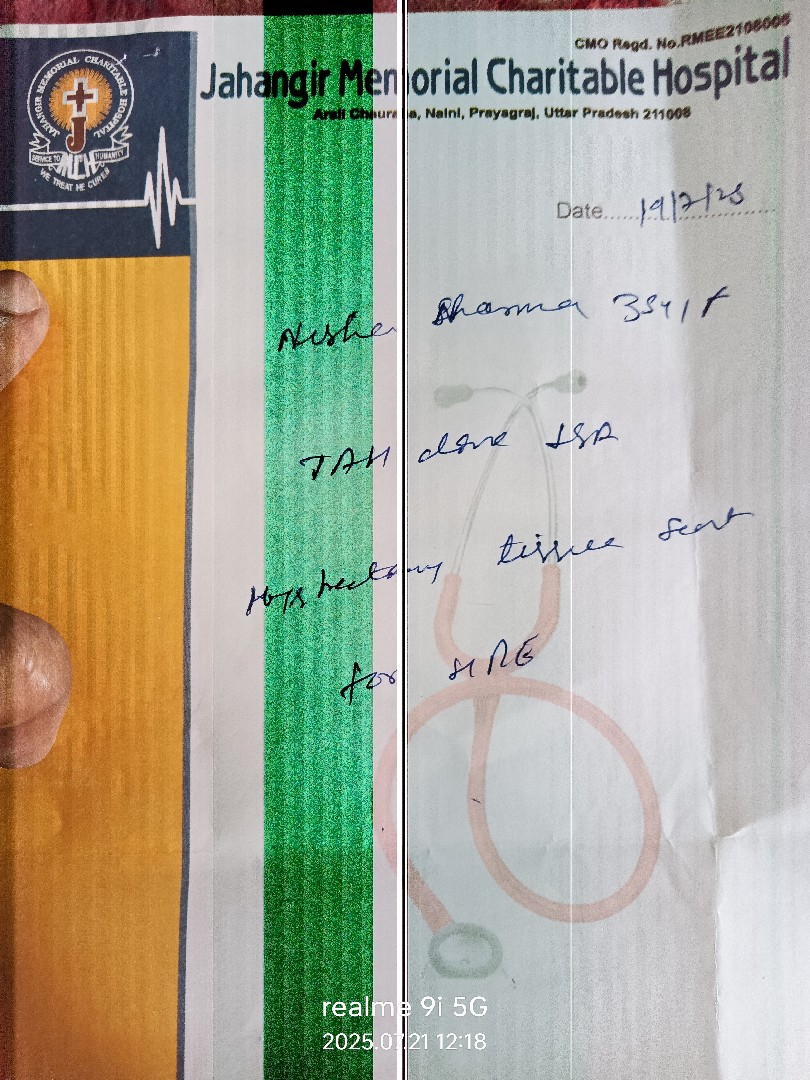 CMO Regd. No.RMEE2108005
Jahangir Memorial Charitable Hospital
Arail Chauraha, Naini, Prayagraj, Uttar Pradesh 211008
JAHANGIR MEMORIAL CHARITABLE HOSPITAL
J
MCH
SERVICE TO HUMANITY
WE TREAT HE CURES
Date......19/7/25
Nisha Sharma 35y/F
TAH done
tissue sent
for HPE
realme 9i 5G
2025.07.21 12:18